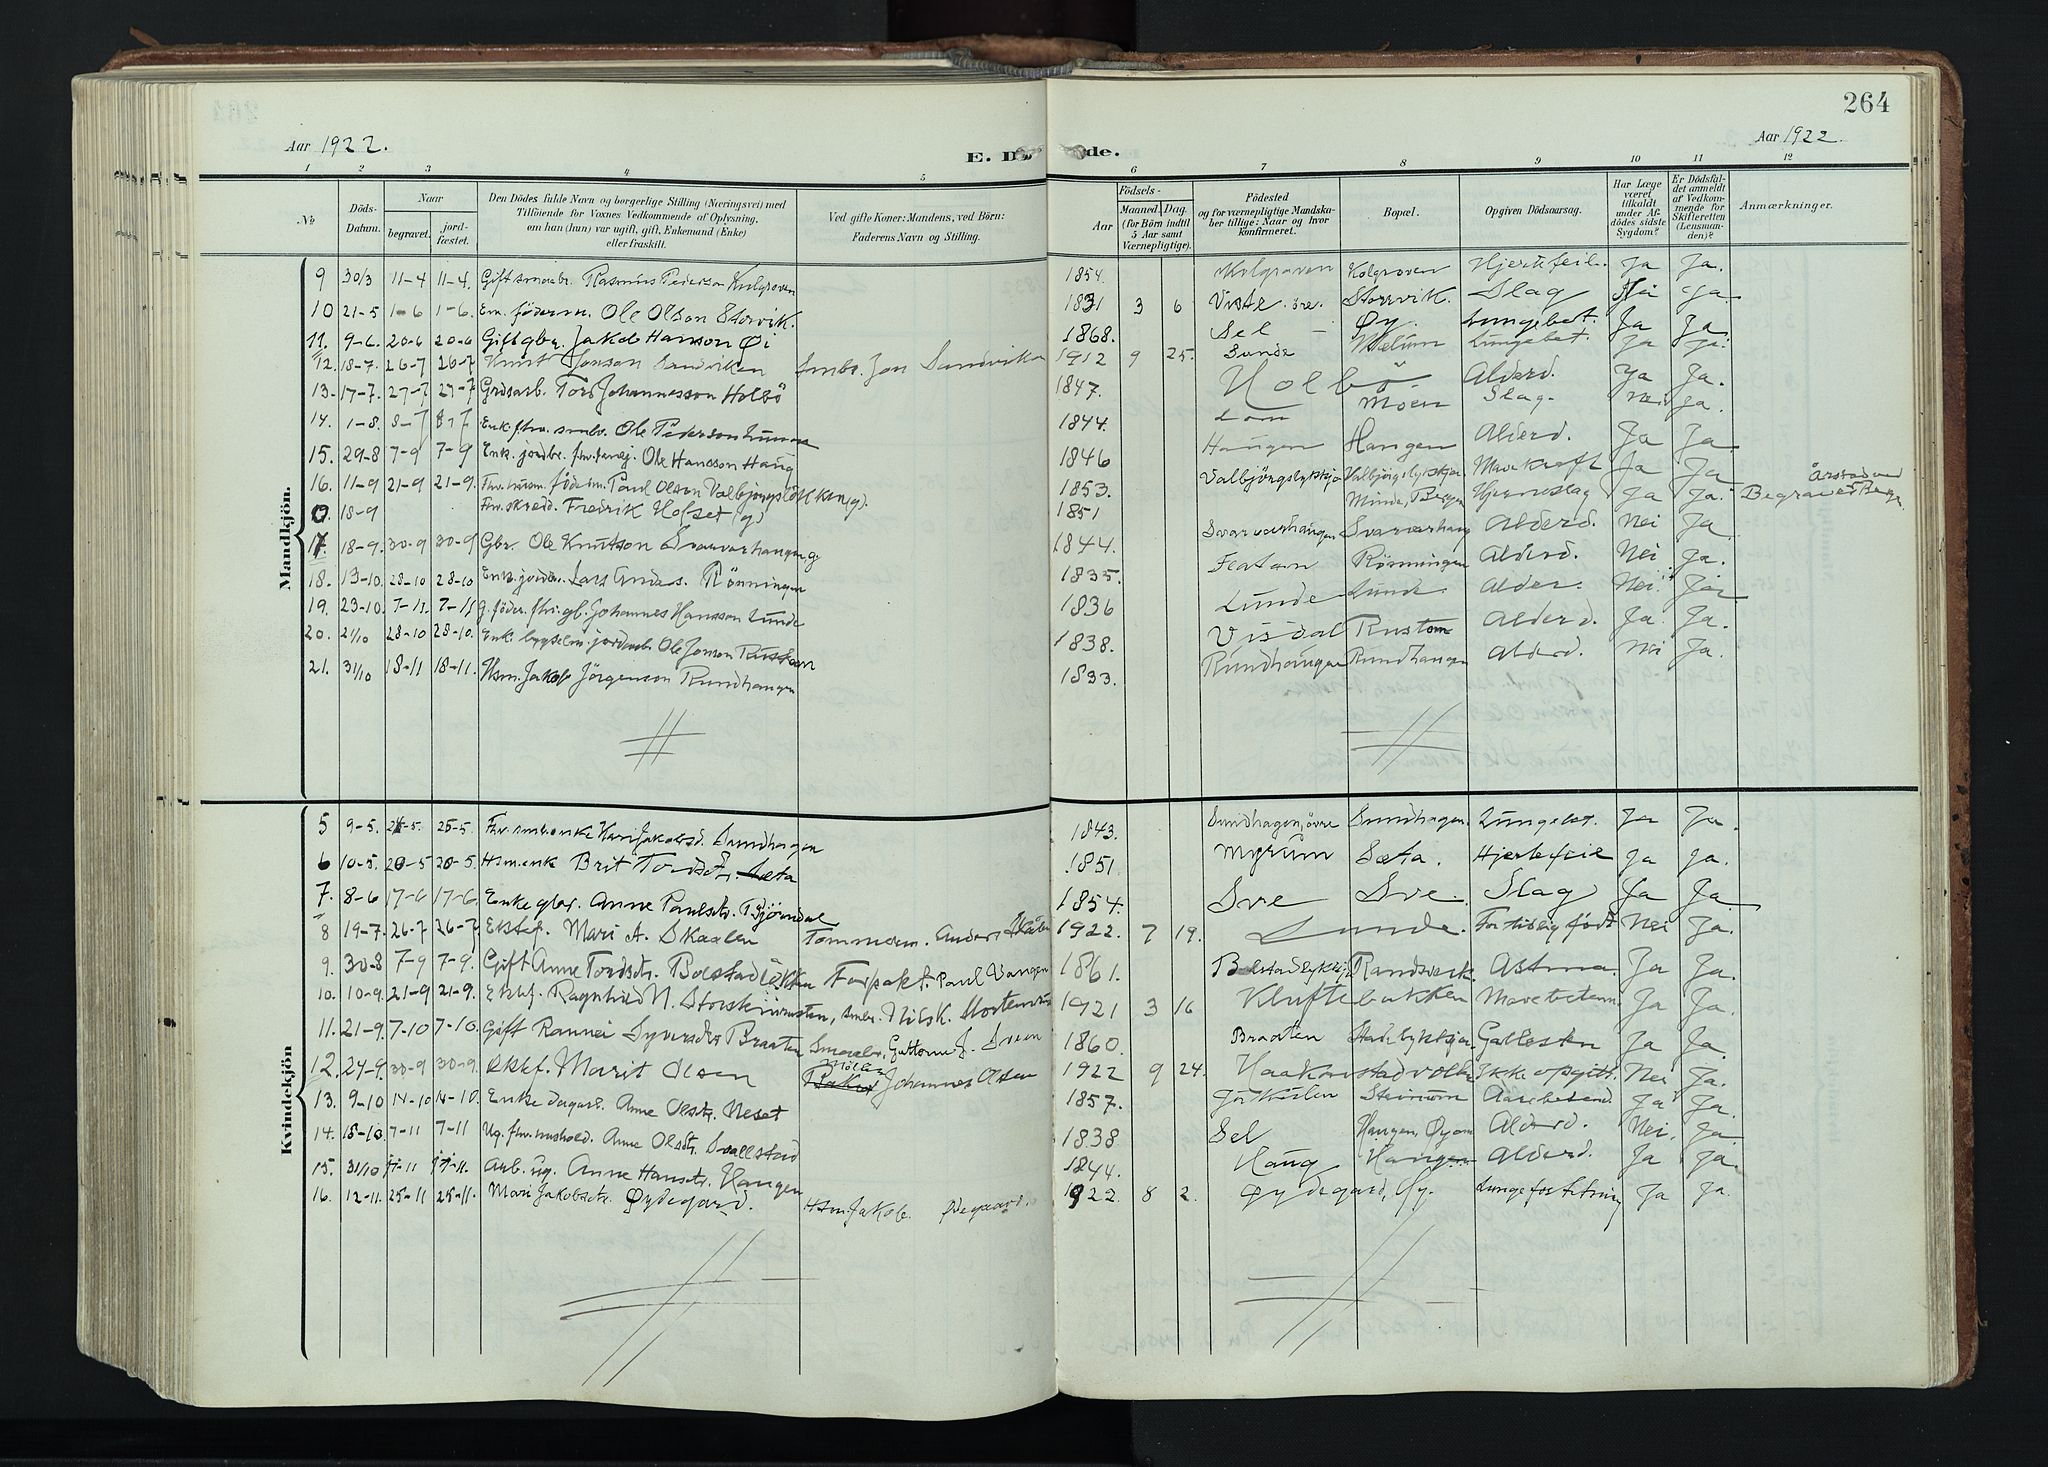 264
Aar 1922.
Aar 1922.
E. D de.
1 2 3 4 5 6 7 8 9 10 11 12
№
Döds-Datum.
Naar
begravet.
jord-fæstet.
Den Dödes fulde Navn og borgerlige Stilling (Næringsvei) med
Tilföiende for Voxnes Vedkommende af Oplysning,
om han (hun) var ugift, gift, Enkemand (Enke)
eller fraskilt.
Ved gifte Koner: Mandens, ved Börn:
Faderens Navn og Stilling.
Födsels-
Aar
Maaned. Dag.
(for Börn indtil 5 Aar samt Værnepligtige).
Födested
og for værnepligtige Mandska-
ber tillige: Naar og hvor
konfirmeret.
Bopæl.
Opgiven Dödsaarsag.
Har Læge været tilkaldt under Af-dödes sidste Sygdom?
Er Dödsfal-det anmeldt af Vedkom-mende for Skifteretten (Lensman-den)?
Anmærkninger.
Mandkjön.
9 30/3 11-4 11-4. Gift smabr. Rasmus Pederson Kolgroven 1854. Kolgroven Kolgroven Hjertefeil. Ja Ja.
10 21-5 1-6 1-6. Em. föderm. Ole Olson Storvik. 1831 3 6 Storvik. Slag Ja.
11. 9-6. 20-6 20-6 Gift gbr. Jakob Hanson Öi 1868. Sel - Øy. Lungebet. Ja Ja
12. 18-7. 26-7 26-7 Knut Jonson Sandviken Smbr. Jon Sandviken 1912 9 25. Sunde Lungebet. Ja Ja.
13. 17-7. 27-7 27-7 Grdsarb. Tord Johannesson Holbö 1847. Holbö Alderd. Ja Ja.
14. 1-8. 8-7 8-7 Enk. fhv. smbr. Ole Pederson 1844. Lom Moen Slag. Nei Ja.
15. 29-8 7-9 7-9 Enk. jordbr. Ole Hansson Haug 1846 Haugen Haugen Alderd. Ja Ja.
16. 11-9 21-9 21-9. Fhv. husm. föderm. Paul Olson Valbjörgslökken (g). 1853. Valbjörgslykkja Valbjörgslykkja Mavekræft Ja Ja
0. 18-9 Fhv. skredd. Fredrik Hofset (g) 1851 Minde, Bergen Hjerneslag Ja Ja. Begravet Årstad ved Bergen
17. 18-9. 30-9 30-9 Gbr. Ole Knutson Svarvarhaugen g. 1844. Svarvarhaugen Svarvarhaug Alderd. Nei Ja.
18. 13-10. 28-10 28-10 Enk. jordbr. Lars Anders. Rönningen 1835. Rönningen Alderd. Nei Ja.
19. 23-10. 7-11. 7-11 g. föder. fhv. gb. Johannes Hansson Lunde 1836 Lunde Lunde Alder. Nei. Ja.
20. 21/10 28-10 28-10. Enk. bygselm. Ole Jonson Rusten 1838. Visdal Rusten Alderd. Ja. Ja.
21. 31/10 18-11 18-11. Hsm. Jakob Jörgenson Rundhaugen 1833. Rundhaugen Rundhaugen Alderd. Nei Ja.
Kvindekjön
5 9-5. 25-5. Fhv. smbr. enke Mari Jakobsd. Sundhagen 1843. Sundhagen, övre Sundhagen. Lungebet. Ja Ja.
6 10-5. 20-5 20-5. Hsm. enk Brit Tordsdtr. Sæta 1851. Myrum Sæta. Hjertefeil Ja Ja.
7. 8-6 17-6 17-6. Enke gbr. Anne Paulsdtr. Björndal 1854. Sve Sve. Slag Ja Ja.
8 19-7. 26-7 26-7. Ektef. Mari A. Skaalen Tømmerm. Anders 1922. 7 19. Lunde. For tidlig födt Nei Ja.
9. 30-8 7-9 7-9. Gift Anne Tordsdtr. Bolstadlökken Forpakt. Paul Vangen 1861. Bolstadlykkja Randsverk. Astma. Ja Ja
10. 10-9. 21-9 21-9. Ektf. Ragnhild N. smbr. Nils K. 1921 3 16 Kluftebakken Ja Ja
11. 21-9. 7-10 7-10. Gift Rannei Syversdtr. Braaten Guttorm J. Sveen 1860. Braaten Gallesten Ja Ja.
12. 24-9. 30-9 30-9. Ektf. Marit Olsen Möller Johannes Olsen 1922 9 24. Ikke opgitt. Nei Ja.
13. 9-10 14-10 14-10. Enke Dagarb. Anne Olsdtr. Neset 1857. Steinom Ja Ja.
14. 18-10. 7-11 7-11 Ug. fhv. hushold. Anne Olsdtr. Svallstad 1838 Sel Haugen, Alderd. Nei. Ja.
15. 31/10 11-11 11-11. Arb. ug. Anne Hansdtr. Haugen 1844. Haug Haugen Alderd. Ja Ja.
16. 12-11. 25-11 25-11. Mari Jakobsdtr. Øydegard. Hsm. Jakob Ødegaard. 1922. 8 2. Øydegard, Ja Ja.